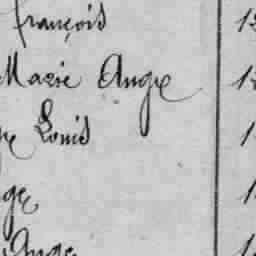 françois 1
Marie Ange 1
Louis 1
ge 1
Ange 1